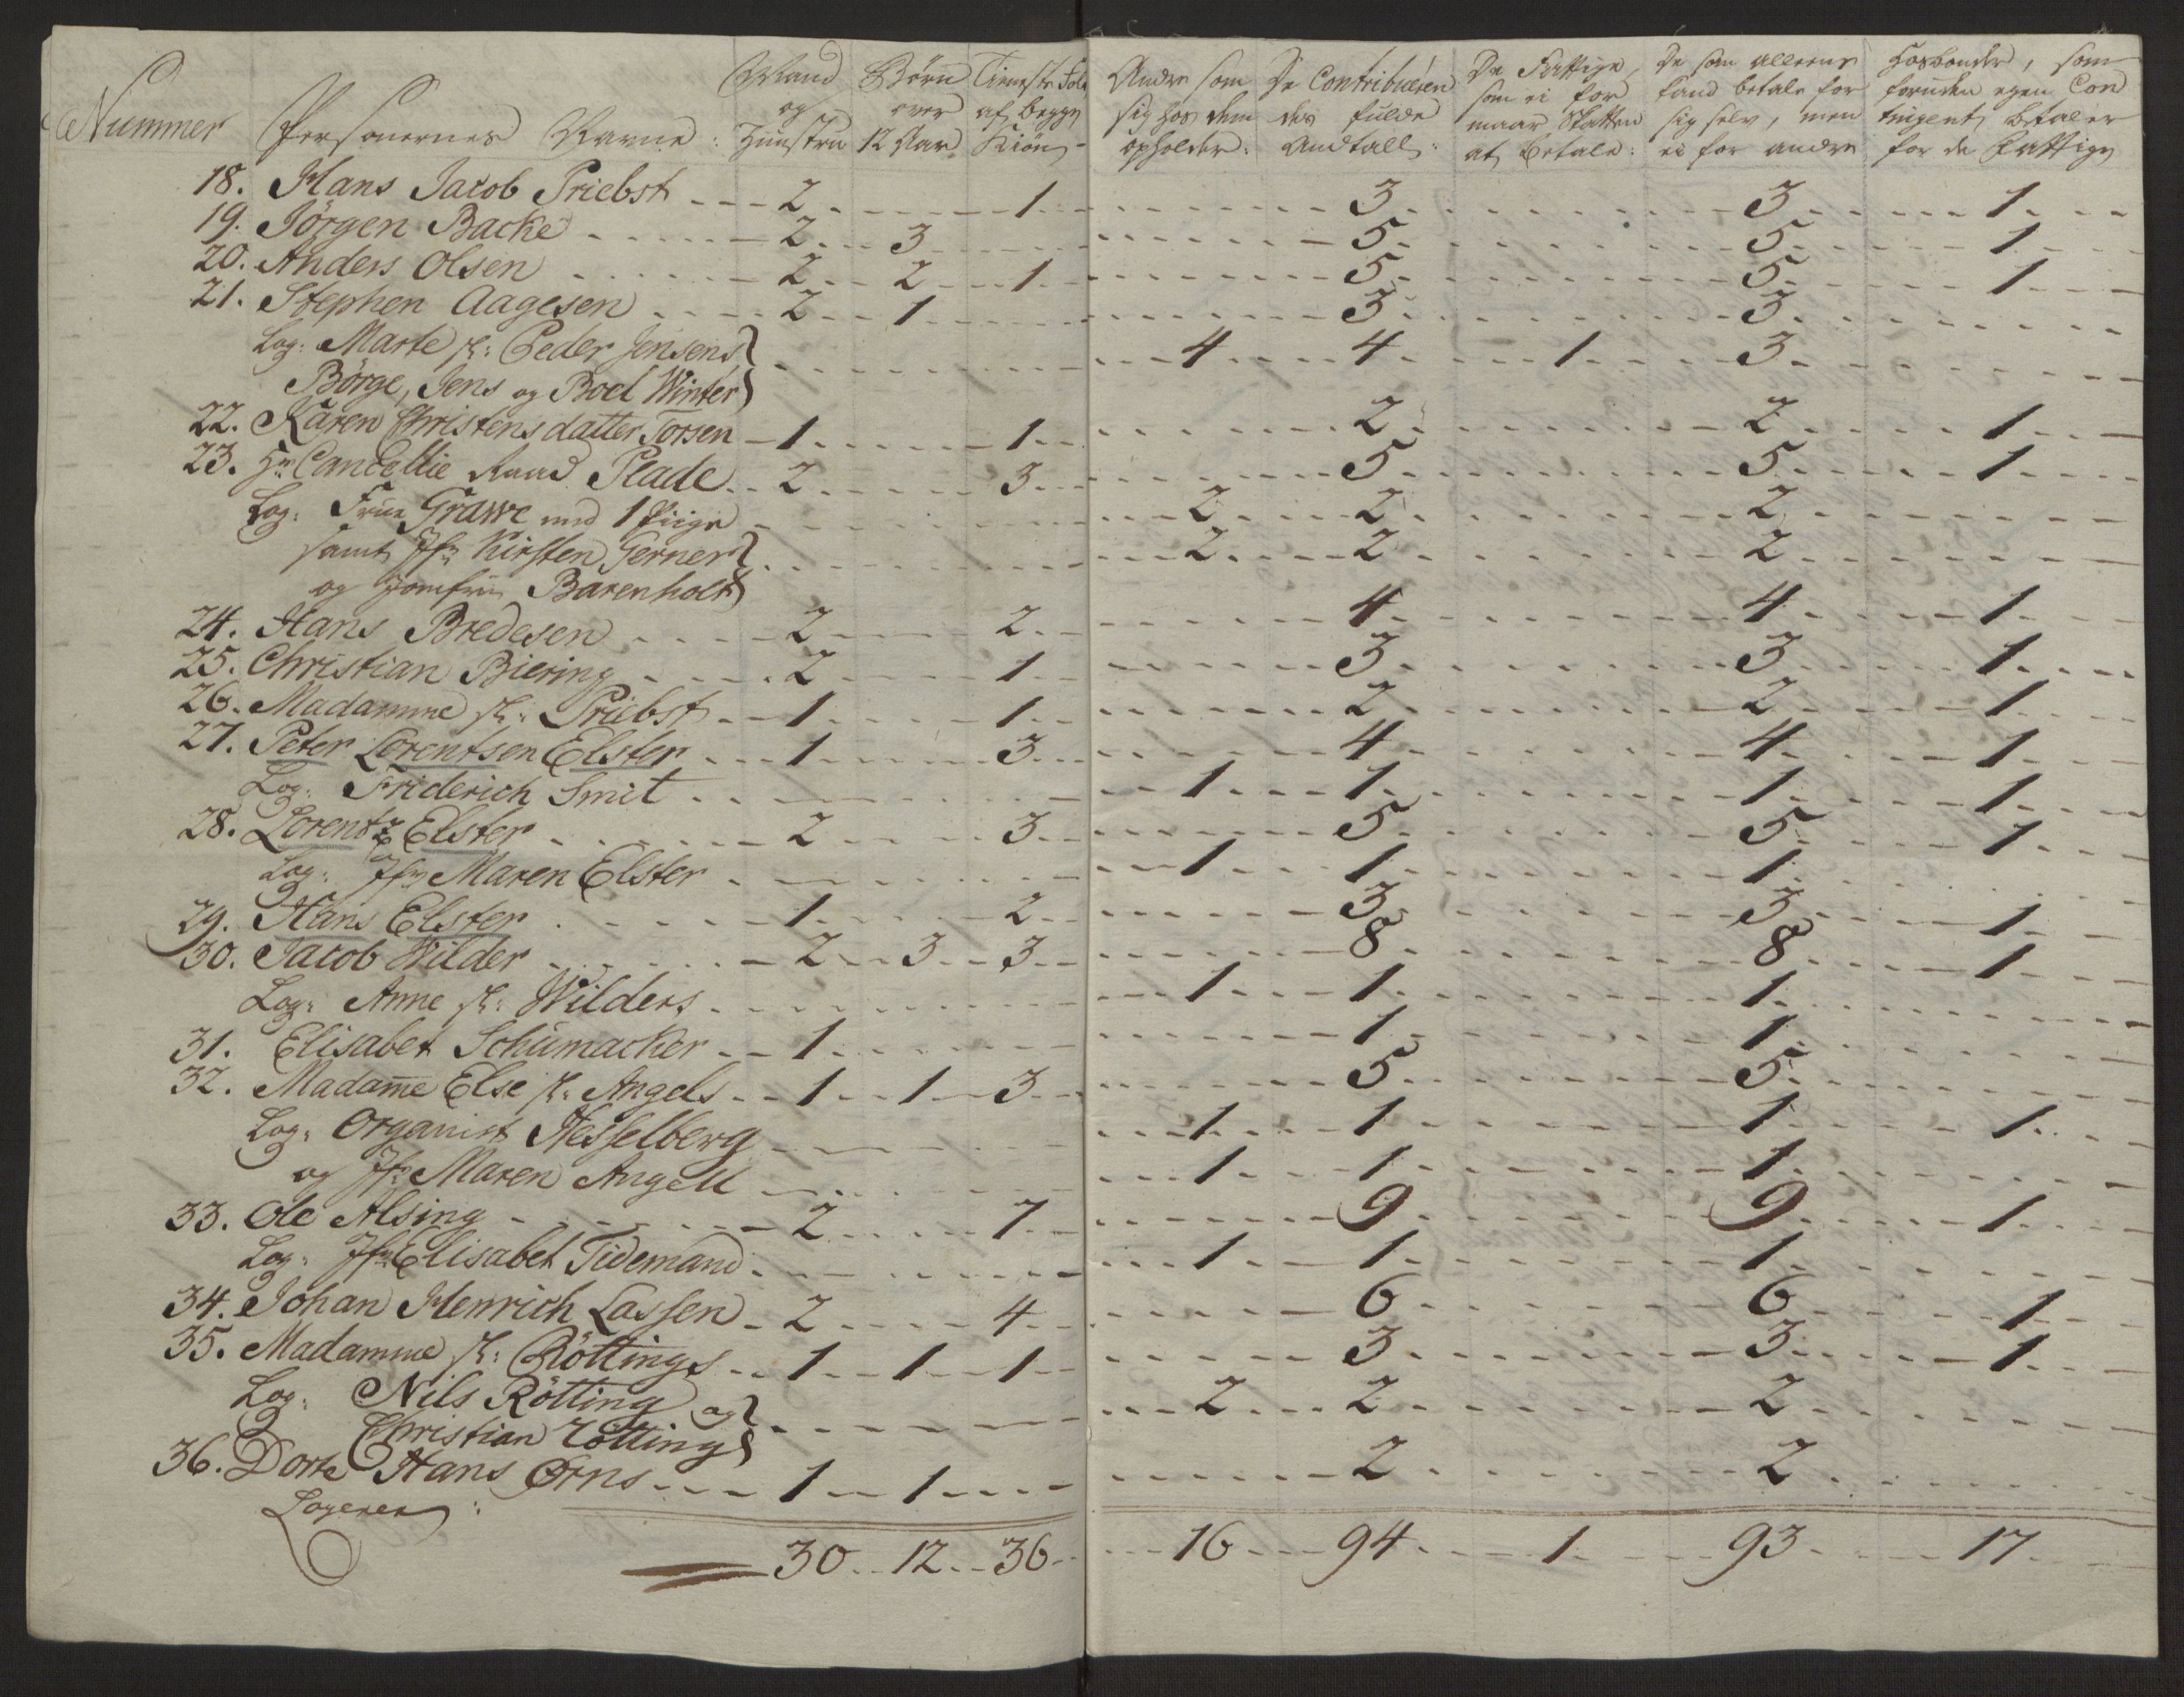 Nummer Personernes Navne: Mand og Hunstru Børn over 12 Aar Tieneste Folk af begge Kiön Andre som sig hos dem opholder: De Contribuerendes fulde Andtall: De Fattige, som ei formaar Skatten at betale: De som alleene kand betale for sig selv, men ei for andre Hosbonder, som foruden egen Contingent, betaler for de Fattige
18. Hans Jacob Priebst 2 1 3 3 1
19. Jörgen Backe 2 3 5 5 1
20. Anders Olsen 2 2 1 5 5 1
21. Stephen Aagesen 2 1 3 3
Log: Marte sl: Peder Jensens 4 4 1 3
Börge, Jens og Boel Winter
22. Karen Christensdatter Torsen 1 1 2 2 1
23. Hr Cancellie Raad Plade 2 3 5 5 1
Log: Frue Grawe med 1 Piige 2 2 2
samt Jfr Kirsten Gerner 2 2 2
og Jomfru Barenholt
24. Hans Bredesen 2 2 4 4 1
25. Christian Biering 2 1 3 3 1
26. Madamme sl: Priebst 1 1 2 2 1
27. Peter Lorentsen Elster 1 3 4 4 1
Log: Friderich Smit 1 1 1 1
28. Lorentz Elster 2 3 5 5 1
Log: Jfr Maren Elster 1 1 1
29. Hans Elster 1 2 3 3 1
30. Jacob Wilder 2 3 3 8 8 1
Log: Anne sl: Wilders 1 1 1
31. Elisabet Schumacker 1 1 1
32. Madame Else sl: Angels 1 1 3 5 5
Log: Organist Hesselberg 1 1 1 1
og Jfr Maren Angell 1 1 1
33. Ole Alsing 2 7 9 9 1
Log: Jfr Elisabet Tidemand 1 1 1
34. Johan Henrich Lassen 2 4 6 6 1
35. Madamme sl: Röttings 1 1 1 3 3 1
Log: Nils Rötting og 2 2 2
Christian Rötting
36. Dorte Hans Ørns 1 1 2 2
Logerer:
30 12 36 16 94 1 93 17